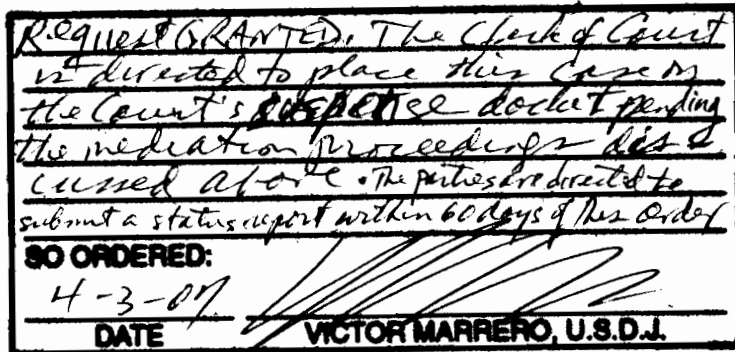 Request GRANTED. The Clerk of Court
is directed to place this case on
the Court's suspense docket pending
the mediation proceedings dis-
cussed above. The parties are directed to
submit a status report within 60 days of this Order
SO ORDERED:
4-3-07
DATE VICTOR MARRERO, U.S.D.J.